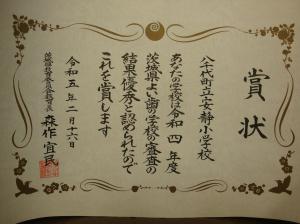 賞状
八千代町立安静小学校
あなたの学校は令和四年度
茨城県よい歯の学校の審査の
結果優秀と認められたので
これを賞します
令和五年二月十六日
森作宜民